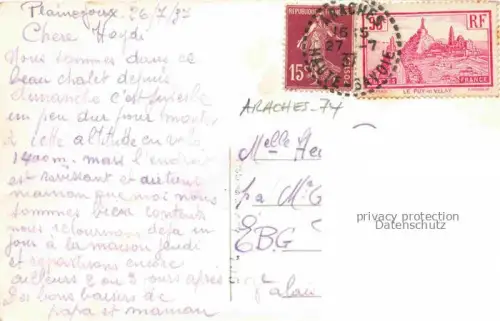 Plainejoux 26/7/37
Chère Heydi
Nous sommes dans ce
beau chalet depuis
dimanche c'est
un peu dur pour monter
à cette altitude en vélo
1400m. mais l'endroit
est ravissant et
maman que moi nous
sommes bien contents
nous retournons déjà un
jour à la maison jeudi
et repartirons encore
ailleurs 2 ou 3 jours après
Des bons baisers de
papa et maman
REPUBLIQUE FRANÇAISE
15c
POSTES
ARACHES
16 15
27 -7
37
HAUTE-SAVOIE
90c
RF
POSTES
FRANCE
LE PUY-EN-VELAY
ARACHES-74
Melle
La
privacy protection
Datenschutz